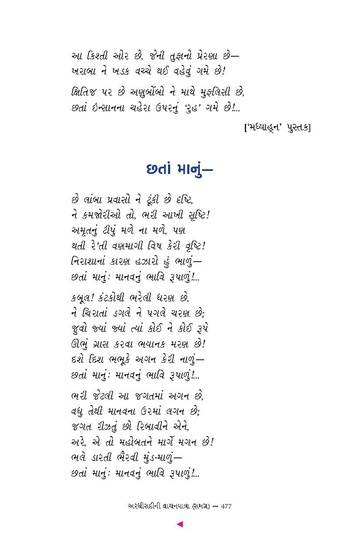 આ કિસ્તી ઓર છે, જેની તુફાનો પ્રેરણા છે—
ખરાબા ને ખડક વચ્ચે થઈ વહેવું ગમે છે!
ક્ષિતિજ પર છે અણુબોંબો ને માથે મુફલિસી છે,
છતાં ઇન્સાનના ચહેરા ઉપરનું ‘રુહ’ ગમે છે!...
[‘મધ્યાહ્ન’ પુસ્તક]
છતાં માનું—
છે લાંબા પ્રવાસો ને ટૂંકી છે દૃષ્ટિ,
ને કમજોરીઓ તો, ભરી આખી સૃષ્ટિ!
અમૃતનું ટીપું મળે ના મળે, પણ
થતી રે’તી વણમાગી વિષ કેરી વૃષ્ટિ!
નિરાશાનાં કારણ હજારો હું ભાળું—
છતાં માનું: માનવનું ભાવિ રૂપાળું!...
કબૂલ! કંટકોથી ભરેલી ધરણ છે,
ને ચિરાતાં ડગલે ને પગલે ચરણ છે;
જુવો જ્યાં જ્યાં ત્યાં કોઈ ને કોઈ રૂપે
ઊભું ગ્રાસ કરવા ભયાનક મરણ છે!
દશે દિશ ભભૂકે અગન કેરી નાળું—
છતાં માનું: માનવનું ભાવિ રૂપાળું!...
ભરી જેટલી આ જગતમાં અગન છે,
વધુ તેથી માનવના ઉરમાં લગન છે;
જગત રીઝતું છો રિબાવીને એને,
અરે, એ તો મહોબતને માર્ગે મગન છે!
ભલે ડારતી ભૈરવી મુંડ-માળું—
છતાં માનું: માનવનું ભાવિ રૂપાળું!...
અરધીસદીની વાચનયાત્રા (સમગ્ર) — 477